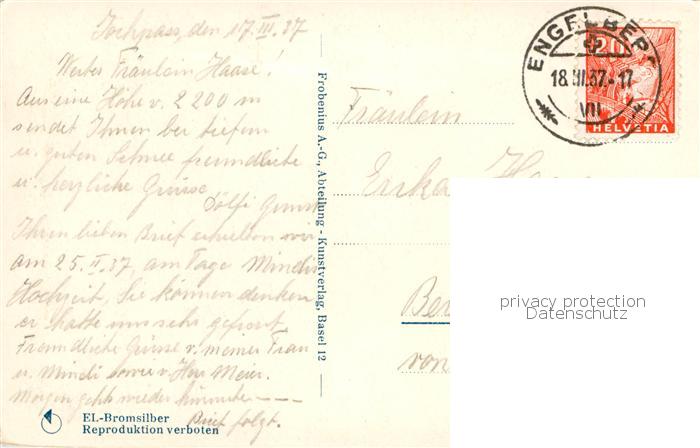 Jochpass, den 17. III. 37
Wertes Fräulein Haase!
Aus eine Höhe v. 2200 m
sendet Ihnen bei tiefem
u. guten Schnee freundliche
u. herzliche Grüsse
Dölfi
Ihren lieben Brief erhielten wir
am 25. II. 37, am Tage Mindis
Hochzeit, Sie können denken
er hatte uns sehr gefreut.
Freundliche Grüsse v. meiner Frau
u. Mindi sowie v. Herr Meier.
Morgen gehts wieder
Brief folgt.
EL-Bromsilber
Reproduktion verboten
Frobenius A.-G., Abteilung - Kunstverlag, Basel 12
ENGELBERG
18. III. 37.-17
VII
20
HELVETIA
Fräulein
Erika
Ber
von
privacy protection
Datenschutz